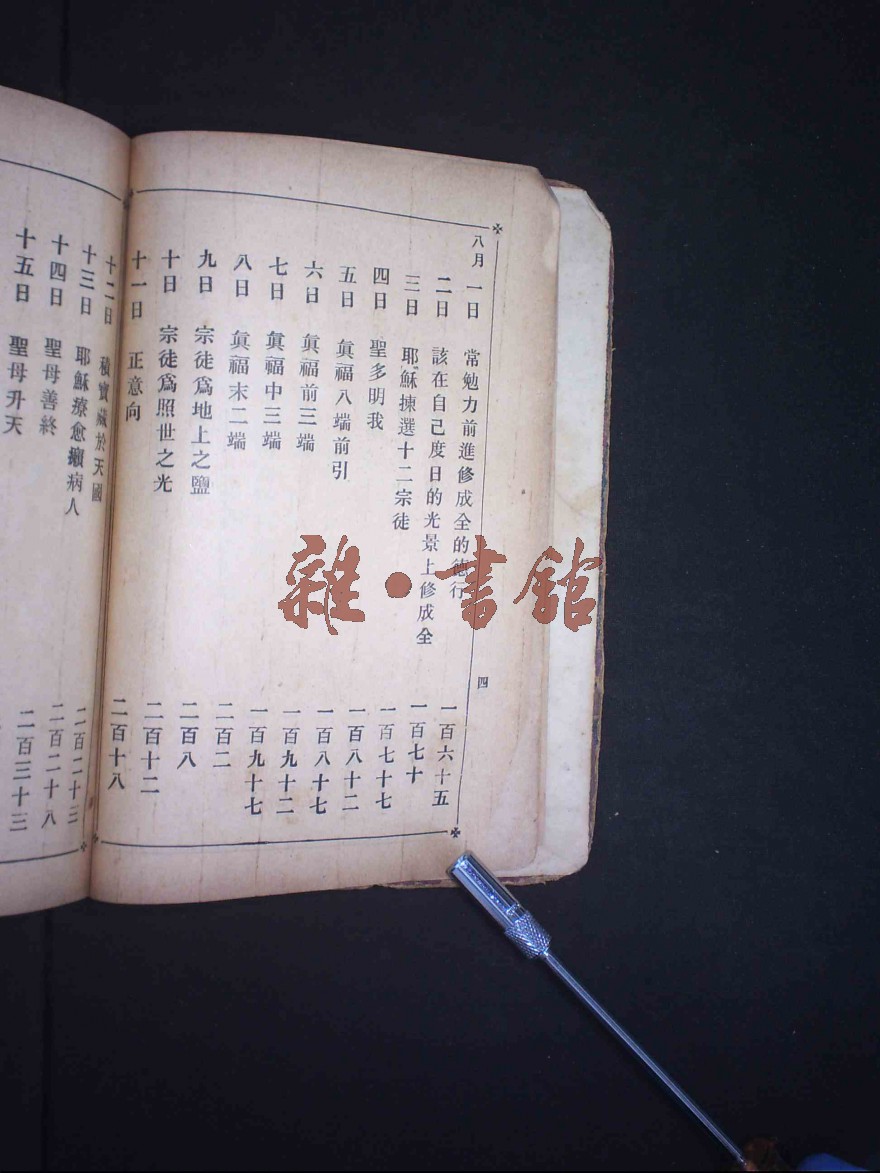 八月
一日 常勉力前進修成全的德行 一百六十五
二日 該在自己度日的光景上修成全 一百七十
三日 耶穌揀選十二宗徒 一百七十七
四日 聖多明我 一百八十二
五日 眞福八端前引 一百八十七
六日 眞福前三端 一百九十二
七日 眞福中三端 一百九十七
八日 眞福末二端 二百二
九日 宗徒爲地上之鹽 二百八
十日 宗徒爲照世之光 二百十二
十一日 正意向 二百十八
四
十二日 積寶藏於天國 二百二十三
十三日 耶穌療愈癩病人 二百二十八
十四日 聖母善終 二百三十三
十五日 聖母升天
雜·書館